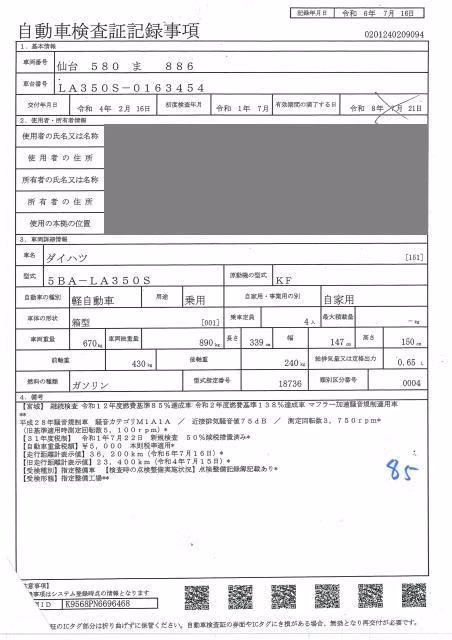 記録年月日 令和 6年 7月 16日
自動車検査証記録事項
0201240209094
1. 基本情報
車両番号 仙台 580 ま 886
車台番号 LA350S-0163454
交付年月日 令和 4年 2月 16日 初度検査年月 令和 1年 7月 有効期間の満了する日 令和 8年 7月 21日
2. 使用者・所有者情報
使用者の氏名又は名称
使用者の住所
所有者の氏名又は名称
所有者の住所
使用の本拠の位置
3. 車両詳細情報
車名 ダイハツ [151]
型式 5BA-LA350S 原動機の型式 KF
自動車の種別 軽自動車 用途 乗用 自家用・事業用の別 自家用
車体の形状 箱型 [001] 乗車定員 4人 最大積載量 -kg
車両重量 670kg 車両総重量 890kg 長さ 339cm 幅 147cm 高さ 150cm
前軸重 430kg 後軸重 240kg 総排気量又は定格出力 0.65 L
燃料の種類 ガソリン 型式指定番号 18736 類別区分番号 0004
4. 備考
【宮城】 継続検査 令和12年度燃費基準85%達成車 令和2年度燃費基準138%達成車 マフラー加速騒音規制適用車
**
平成28年騒音規制車 騒音カテゴリM1A1A / 近接排気騒音値75dB / 測定回転数3,750rpm*
(旧基準適用時測定回転数5,100rpm)*
【31年度税制】 令和1年7月22日 新規検査 50%減税措置済み*
【自動車重量税額】 ¥5,000 本則税率適用*
【走行距離計表示値】36,200km(令和6年7月16日)*
【旧走行距離計表示値】23,400km(令和4年7月15日)*
【受検種別】指定整備車 【検査時の点検整備実施状況】点検整備記録簿記載あり*
【受検形態】指定整備工場**
85
意事項】
事項はシステム登録時点の情報となります
ID K9568PN6696468
証のICタグ部分は折り曲げずに保管ください。自動車検査証の券面やICタグにき損がある場合、無効となり再交付が必要です。